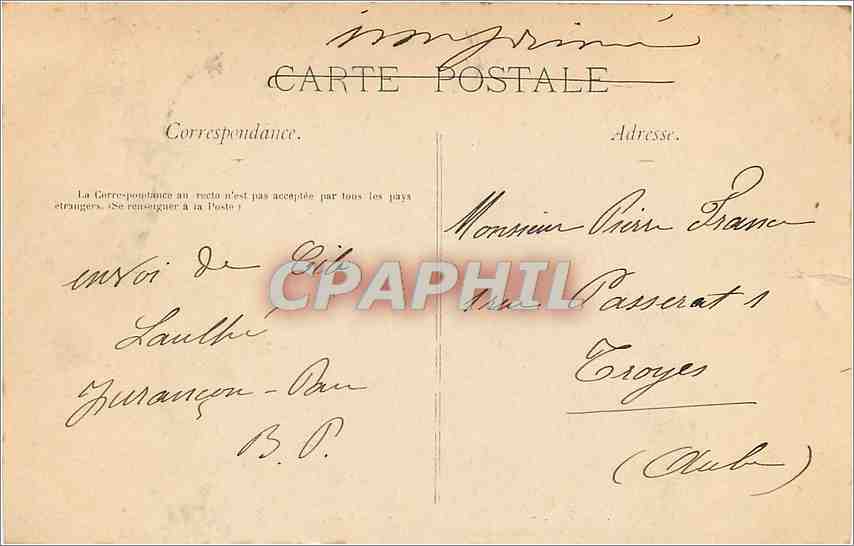 imprimé
CARTE POSTALE
Correspondance.
Adresse.
La Correspondance au recto n'est pas acceptée par tous les pays
étrangers. (Se renseigner à la Poste)
envoi de
Jurançon - Pau
B. P.
Monsieur Pierre France
rue Passerat 1
Troyes
(Aube)
CPAPHIL